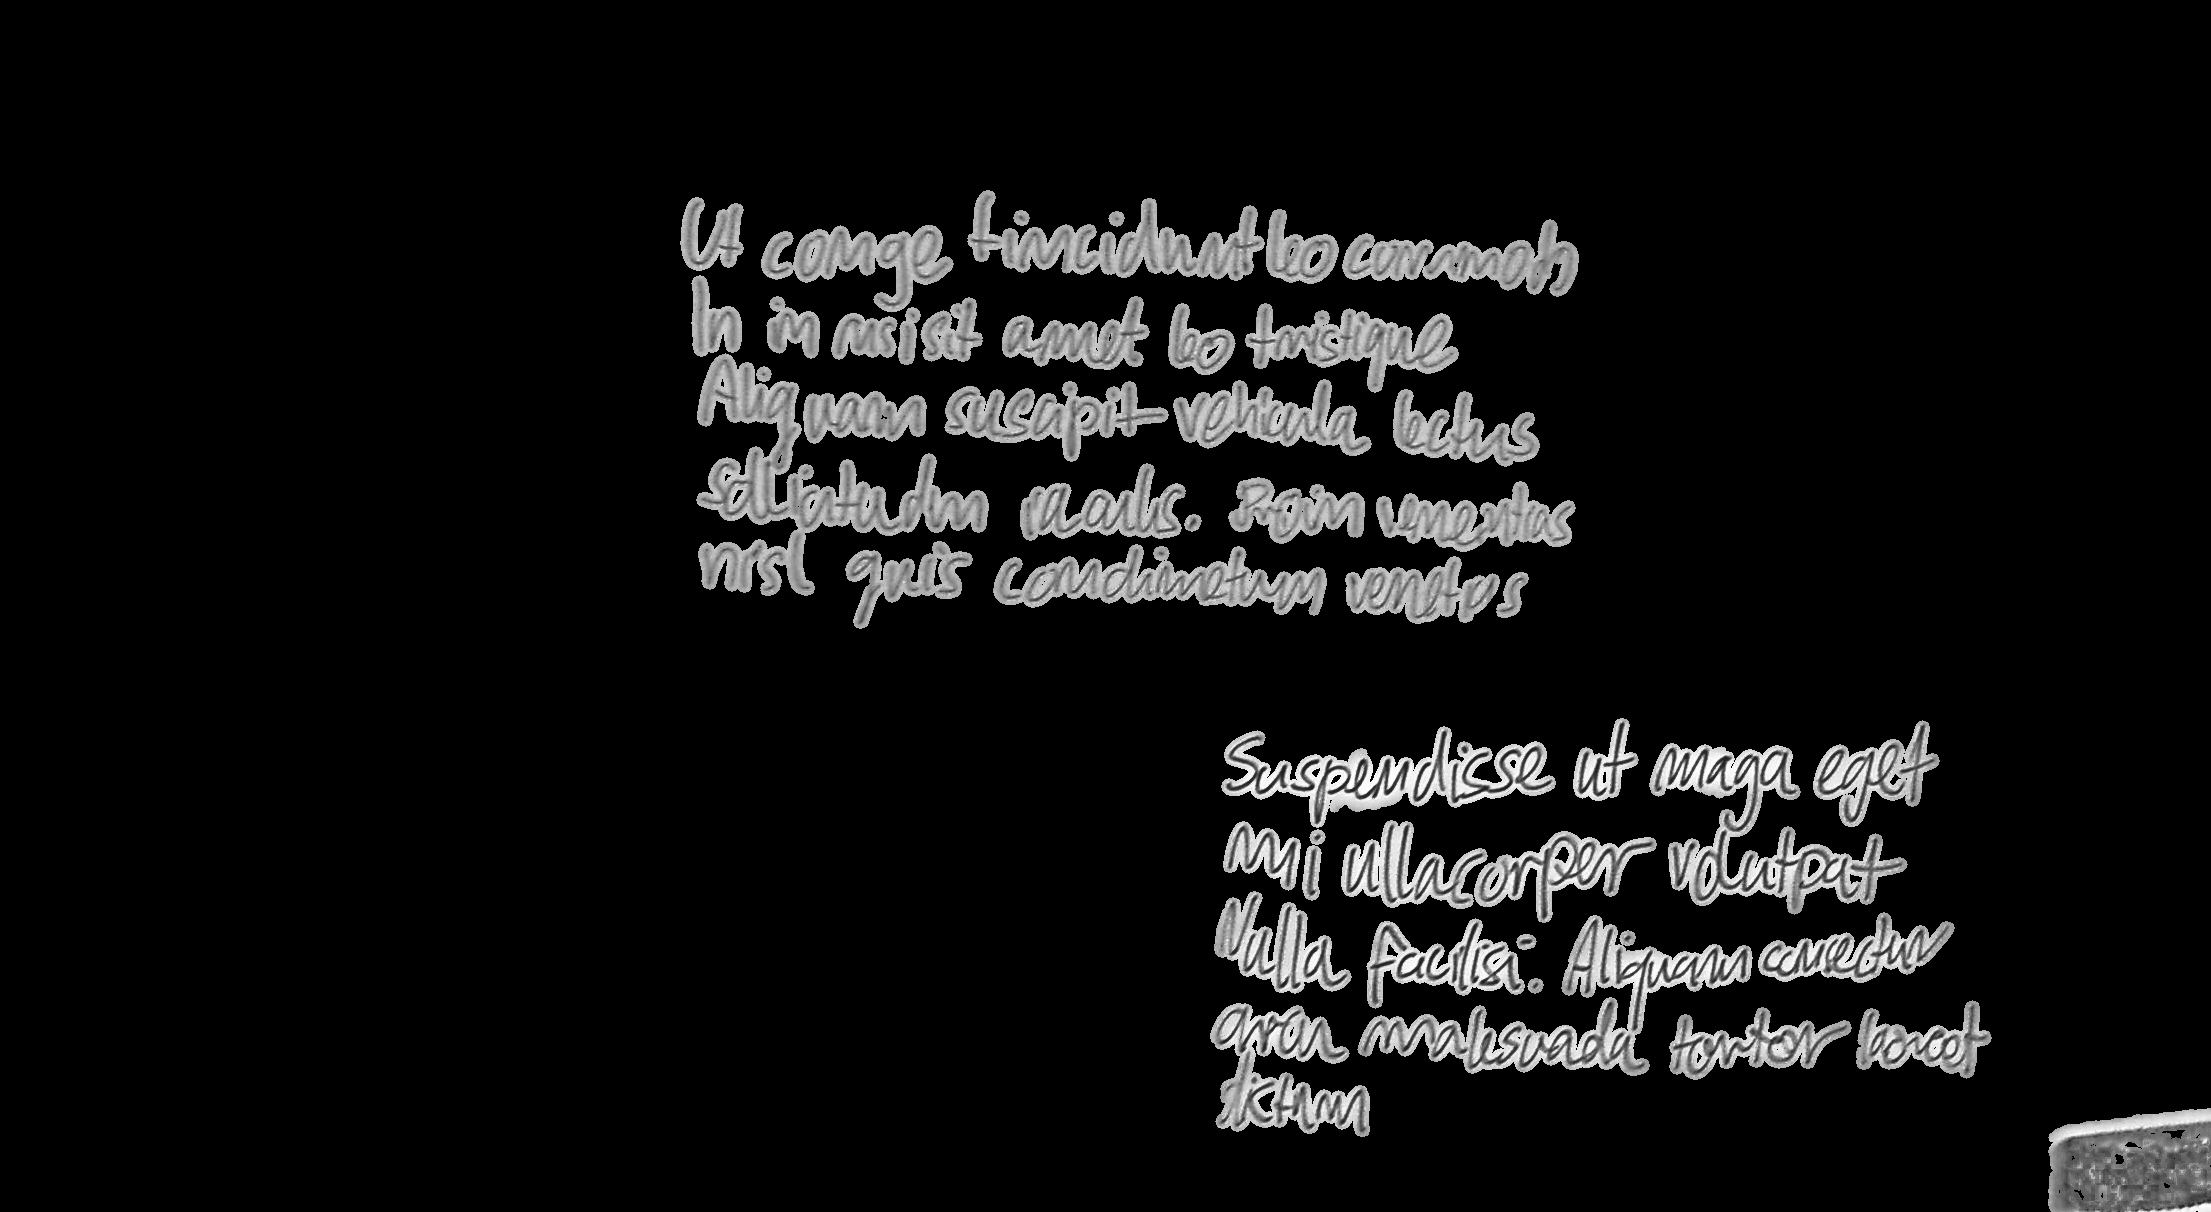 Ut conge tincidunt leo commodo
In in nisi sit amet leo tristique
Aliquam suscipit vehicula lectus
sollicitudin iaculis. Proin venenatis
nisl quis condimetum venetus
Suspendisse ut maga eget
mi ullacorper volutpat
Nulla facilisi. Aliquam consectur
arcu malesuada tortor laoreet
dictum